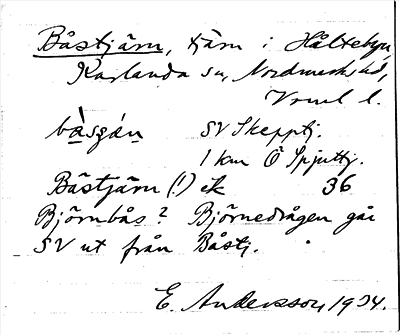 Båstjärn, tjärn i Håltebyn,
Karlanda sn, Nordmarks hd,
Vrml l.
bàsʒán SV Skepptj.
1 km Ö Spjuttj.
Bästjärn (!) ek 36
Björnbås? Björnedrågen går
SV ut från Båstj.
E. Andersson, 1934.